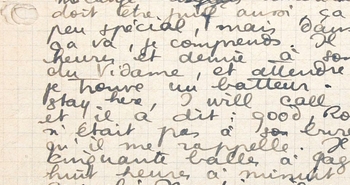 doit être juif aussi, ça
peu spécial, mais dans
ça va, je comprends. Je
heures et demie à son
du Vidame, et attendre
je trouve un batteur.
stay here, I will call
et il a dit: good, Ro
n'était pas à son bure
qu'il me rappelle. J
cinquante balles à gag
huit heures à minuit